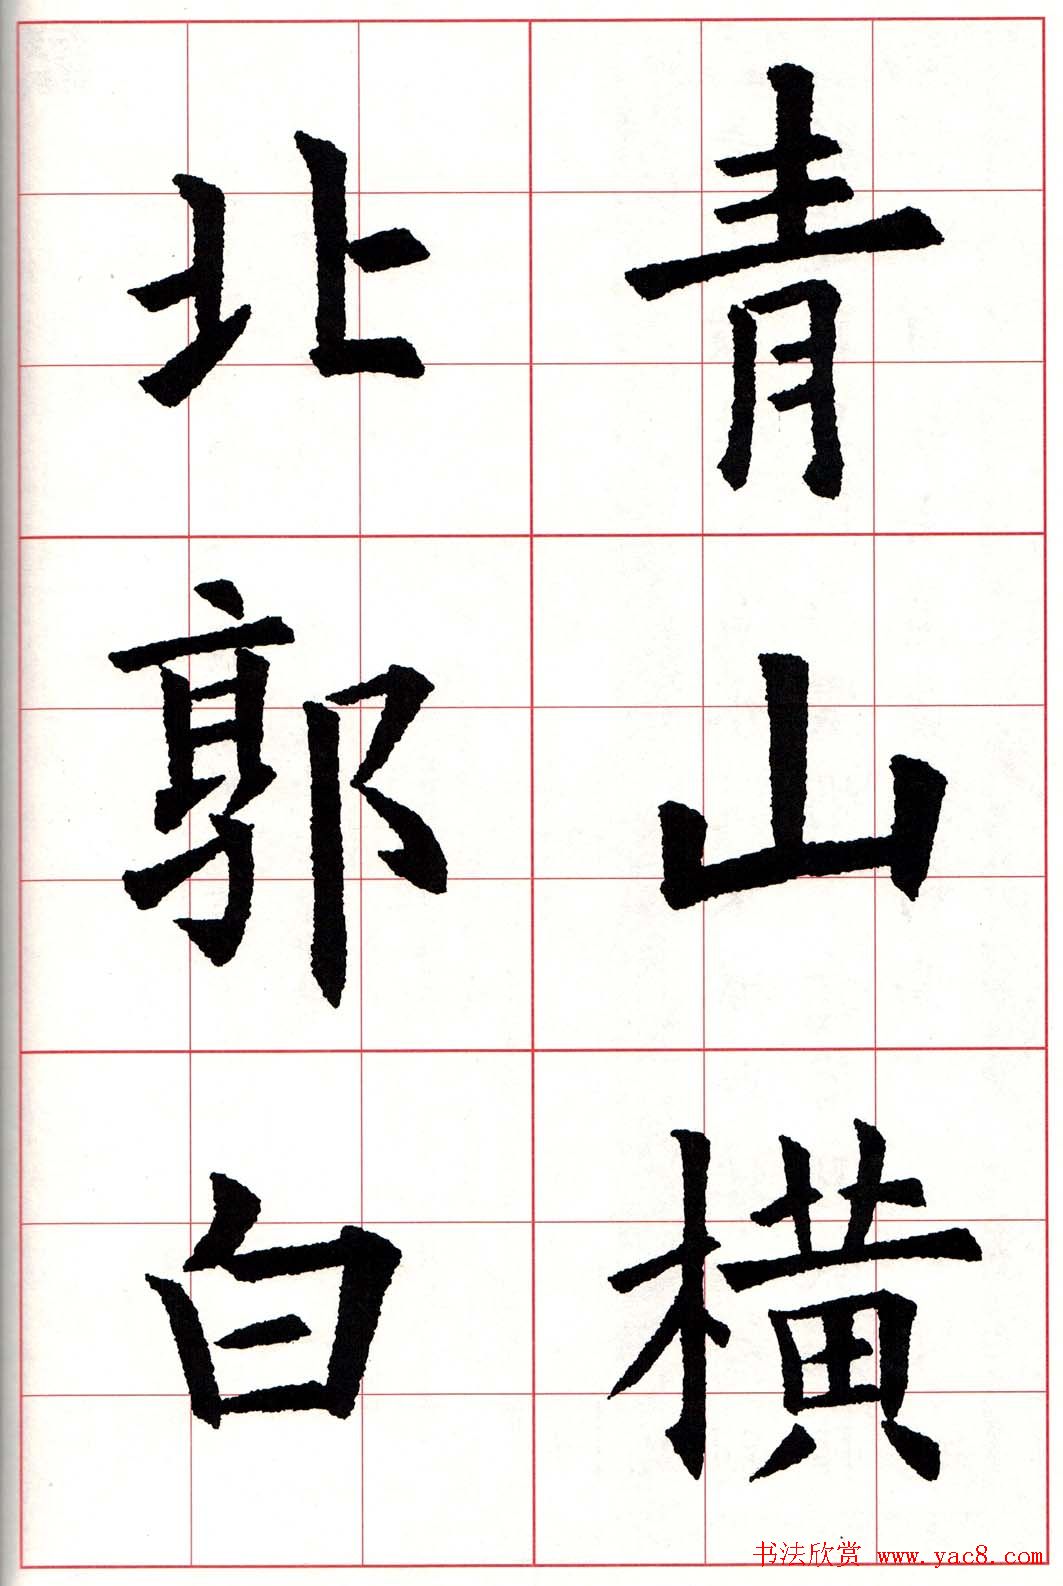 青山横
北郭白
书法欣赏 www.yac8.com